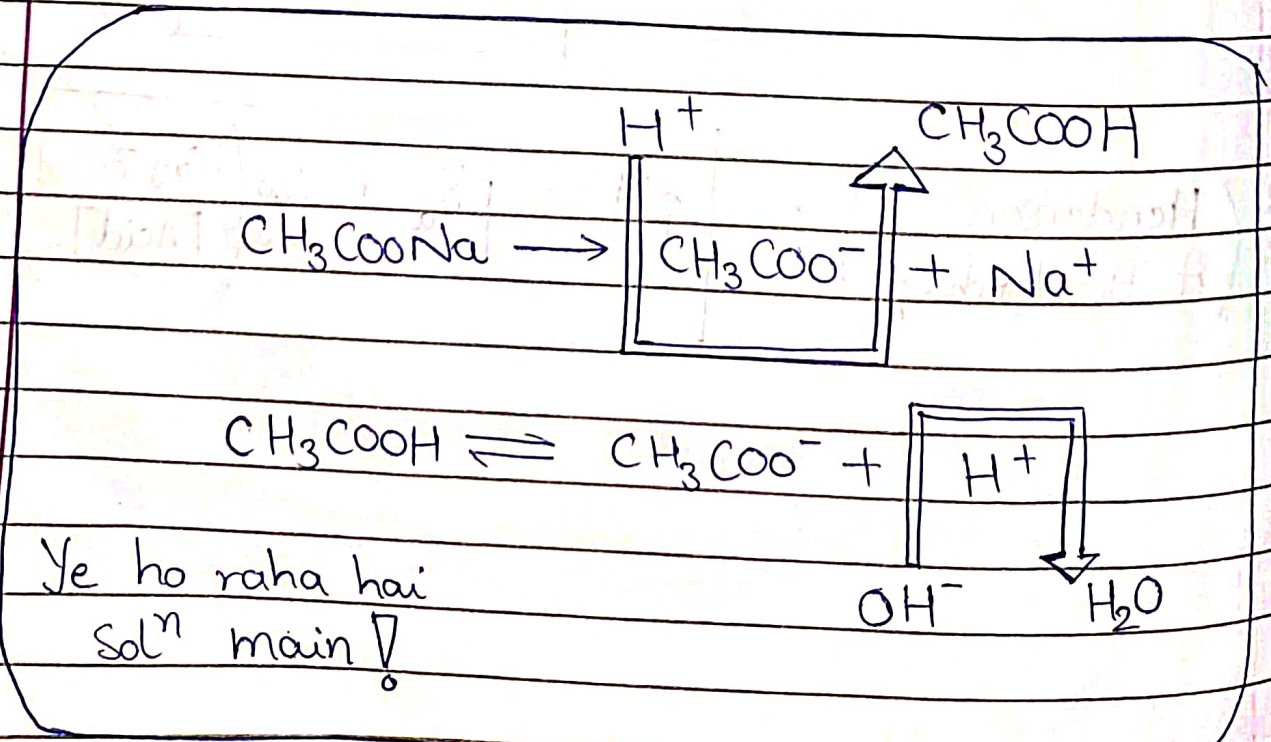 H⁺ CH₃COOH
CH₃COONa ⟶ CH₃COO⁻ + Na⁺
CH₃COOH ⇌ CH₃COO⁻ + H⁺
Ye ho raha hai
OH⁻ H₂O
Solⁿ main !